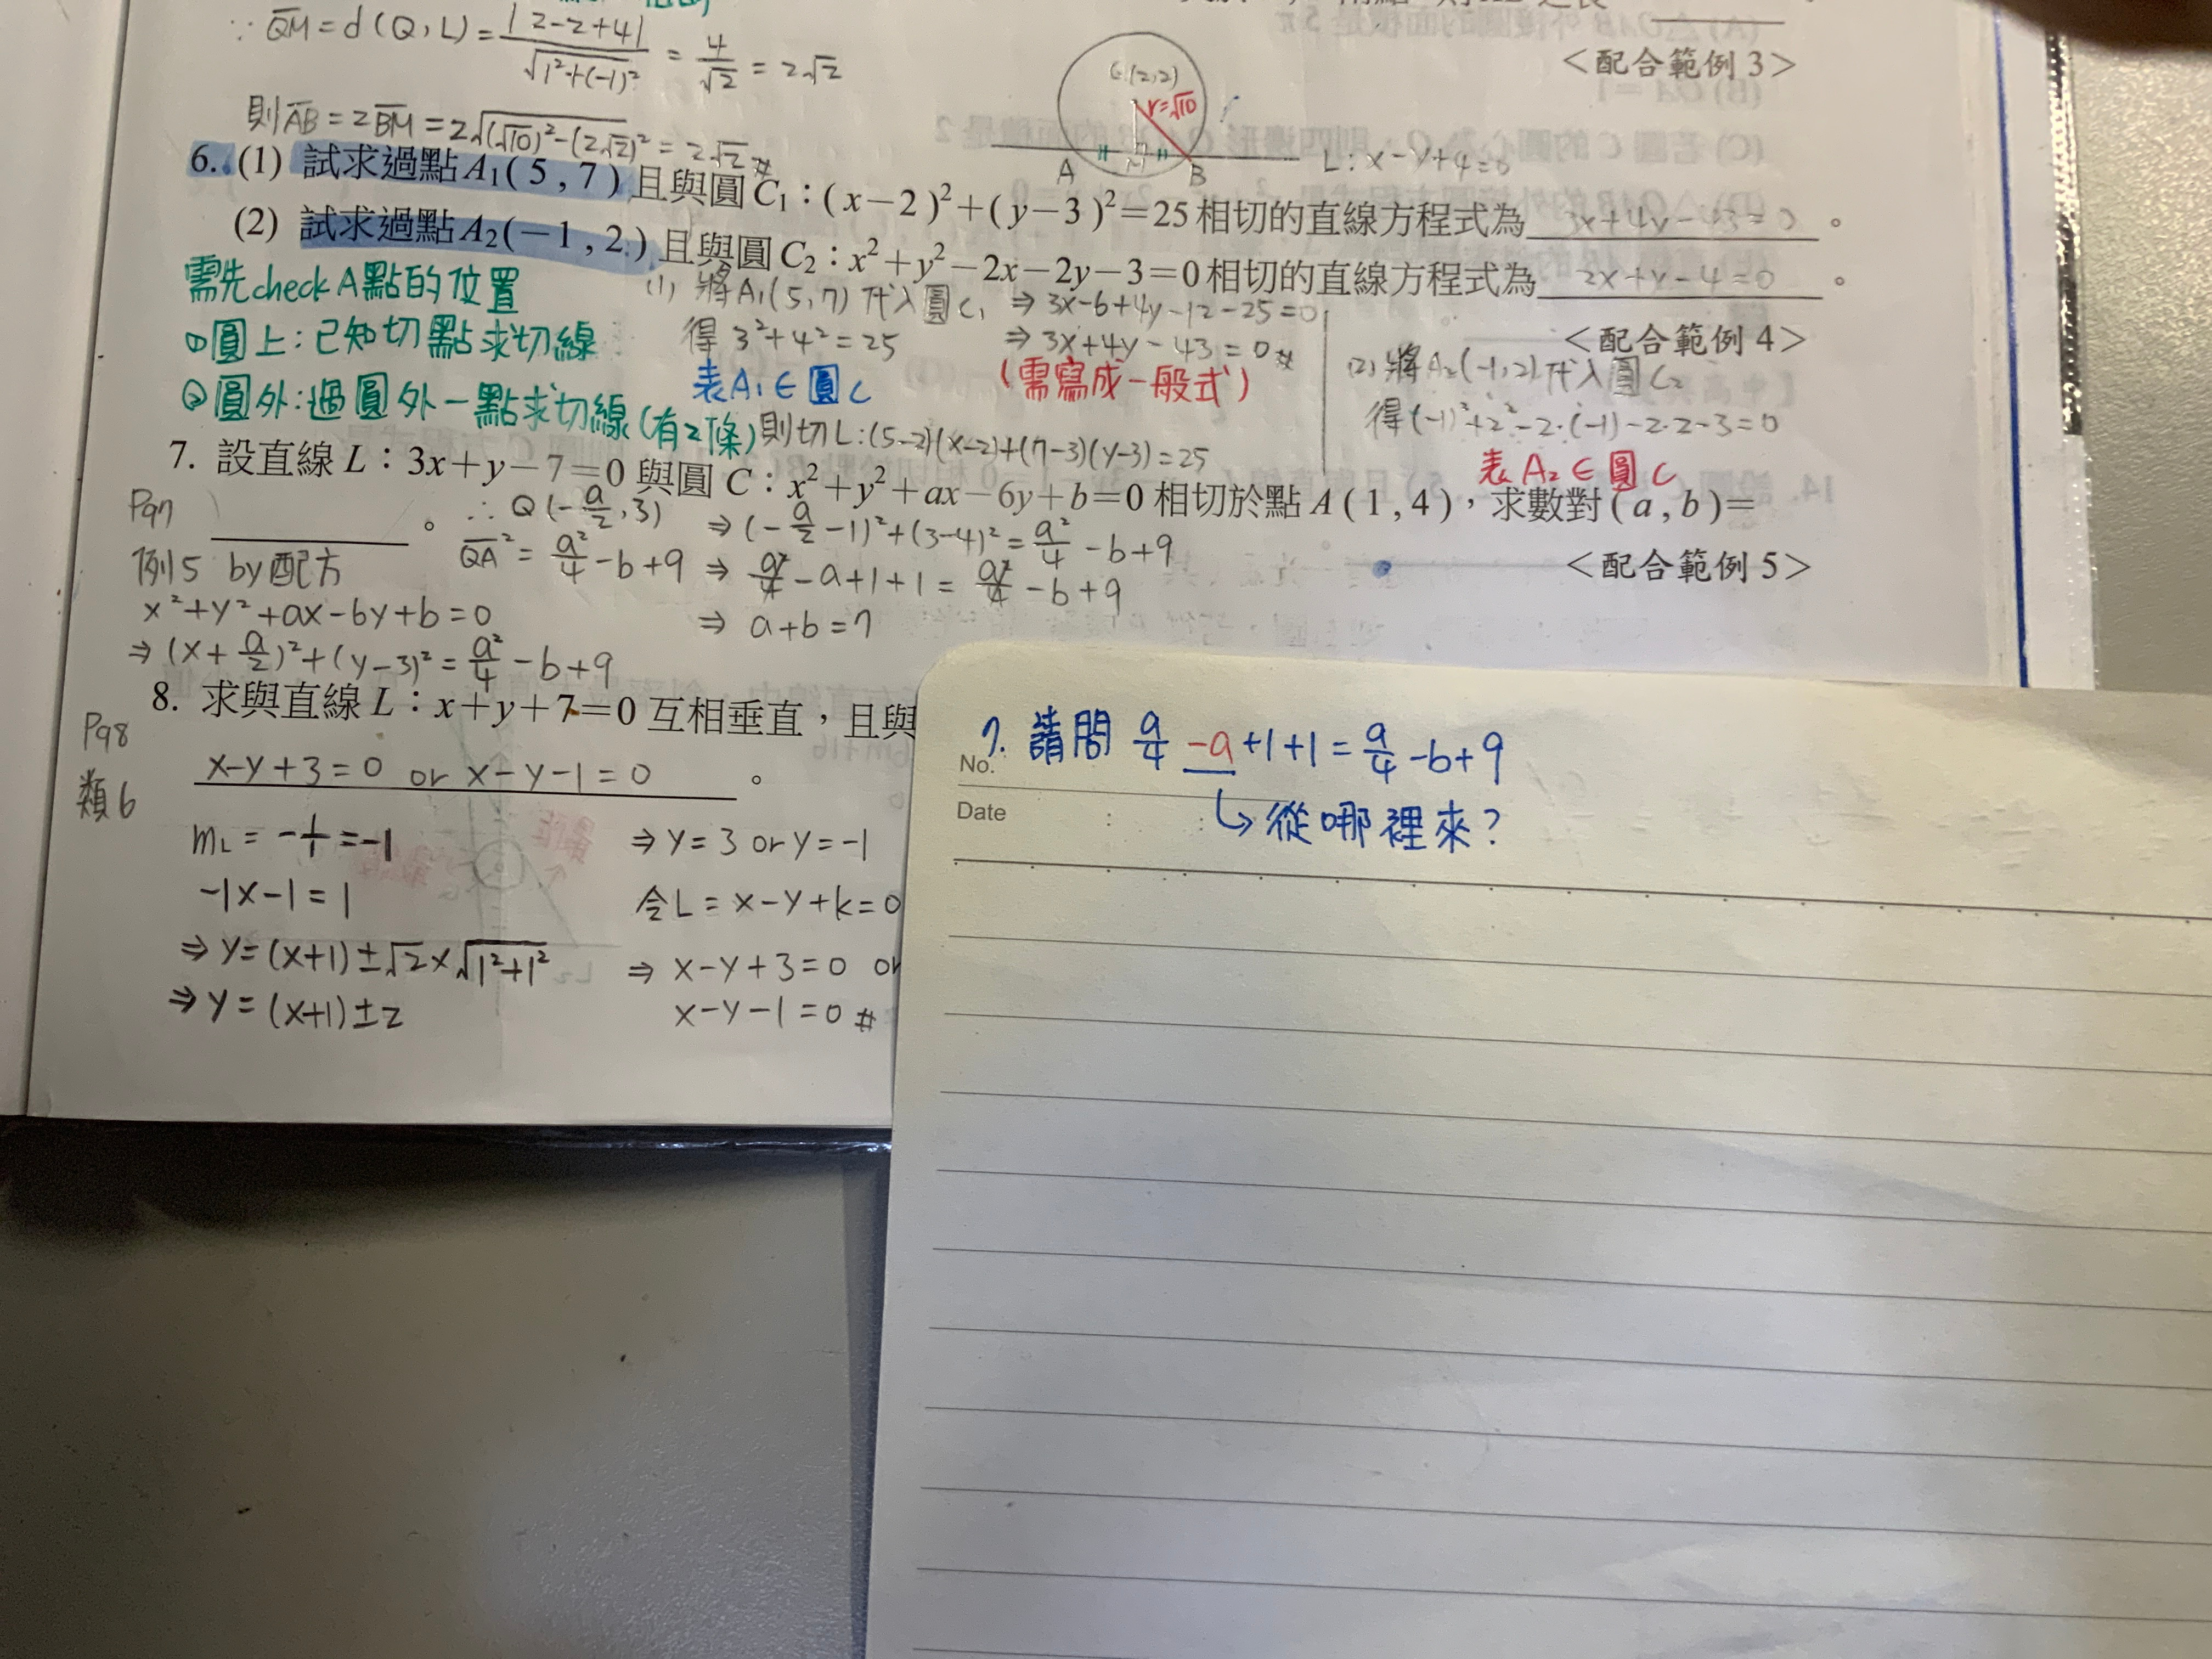 ∵ QM = d(Q, L) = |2-2+4| / √(1²+(-1)²) = 4/√2 = 2√2
則 AB = 2BM = 2√((√10)²-(2√2)²) = 2√2 #
(2,2)
r=√10
A M B
L: x-y+4=0
<配合範例 3>
6. (1) 試求過點 A₁(5, 7) 且與圓 C₁：(x-2)²+(y-3)²=25 相切的直線方程式為 3x+4y-43=0 。
(2) 試求過點 A₂(-1, 2) 且與圓 C₂：x²+y²-2x-2y-3=0 相切的直線方程式為 2x+y-4=0 。
<配合範例 4>
需先check A點的位置
①圓上：已知切點求切線
②圓外：過圓外一點求切線(有2條)
(1) 將A₁(5,7)代入圓C₁
得 3²+4²=25
表A₁∈圓C
則切L: (5-2)(x-2)+(7-3)(y-3)=25
⇒ 3x-6+4y-12-25=0
⇒ 3x+4y-43=0 #
(需寫成一般式)
(2) 將A₂(-1,2)代入圓C₂
得(-1)²+2²-2·(-1)-2·2-3=0
表A₂∈圓C
7. 設直線 L：3x+y-7=0 與圓 C：x²+y²+ax-6y+b=0 相切於點 A(1, 4)，求數對(a, b)=
。
<配合範例 5>
P97
例5 by配方
x²+y²+ax-6y+b=0
⇒ (x+a/2)²+(y-3)² = a²/4-b+9
∴ Q(-a/2, 3)
QA² = a²/4-b+9
⇒ (-a/2-1)²+(3-4)² = a²/4-b+9
⇒ a²/4-a+1+1 = a²/4-b+9
⇒ a+b=7
8. 求與直線 L：x+y+7=0 互相垂直，且與
x-y+3=0 or x-y-1=0 。
P98
類6
mL = -1/1 = -1
-1×-1=1
⇒ y=(x+1)±√2×√(1²+1²)
⇒ y=(x+1)±2
⇒ y=3 or y=-1
令L=x-y+k=0
⇒ x-y+3=0 or
x-y-1=0 #
7. 請問 a/4 -a+1+1 = a/4 -b+9
↳從哪裡來?
No.
Date : :